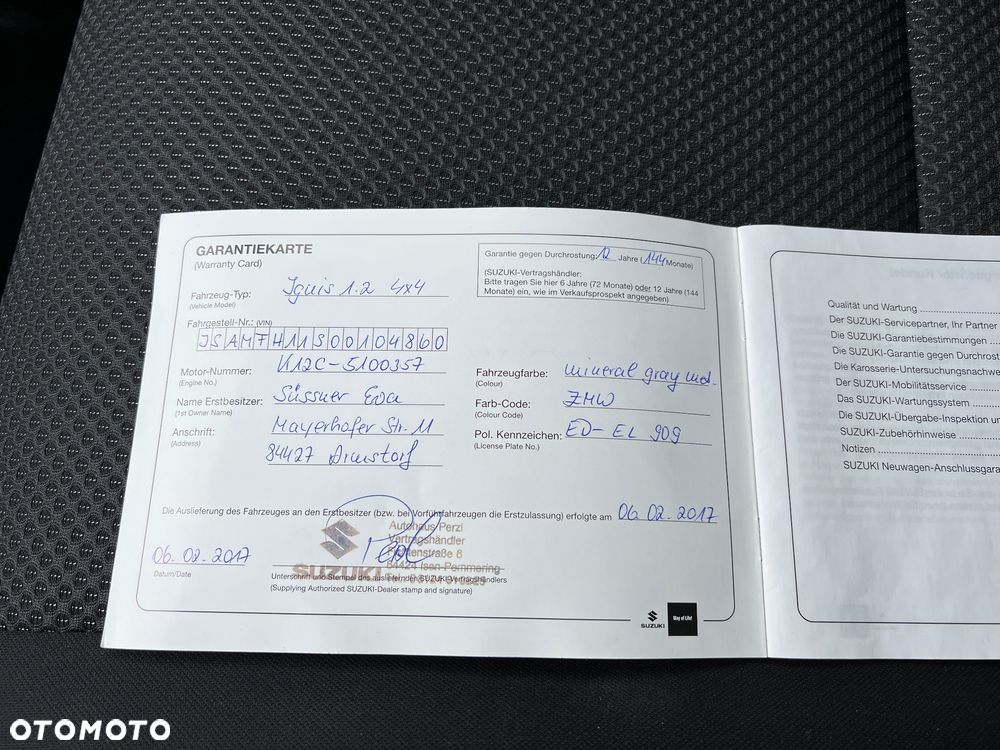 GARANTIEKARTE
(Warranty Card)
Garantie gegen Durchrostung: 12 Jahre (144 Monate)
(SUZUKI-Vertragshändler:
Bitte tragen Sie hier 6 Jahre (72 Monate) oder 12 Jahre (144
Monate) ein, wie im Verkaufsprospekt angegeben)
Fahrzeug-Typ: Ignis 1.2 4x4
(Vehicle Model)
Fahrgestell-Nr.: (VIN)
JSAMFH11S00104860
Motor-Nummer: K12C-5100357
(Engine No.)
Name Erstbesitzer: Süssner Eva
(1st Owner Name)
Anschrift: Mayerhofer Str. 11
(Address)
84427
Fahrzeugfarbe: mineral gray met.
(Colour)
Farb-Code: ZMW
(Colour Code)
Pol. Kennzeichen: ED-EL 909
(License Plate No.)
Die Auslieferung des Fahrzeuges an den Erstbesitzer (bzw. bei Vorführfahrzeugen die Erstzulassung) erfolgte am 06.02.2017
06.02.2017
Datum/Date
SUZUKI
Autohaus Perzl
Vertragshändler
84424 Isen-Pemmering
Unterschrift und Stempel des ausliefernden SUZUKI-Vertragshändlers
(Supplying Authorized SUZUKI-Dealer stamp and signature)
SUZUKI
Way of Life!
Qualität und Wartung
Der SUZUKI-Servicepartner, Ihr Partner
Die SUZUKI-Garantiebestimmungen
Die SUZUKI-Garantie gegen Durchrost
Die Karosserie-Untersuchungsnachwe
Der SUZUKI-Mobilitätsservice
Das SUZUKI-Wartungssystem
Die SUZUKI-Übergabe-Inspektion un
SUZUKI-Zubehörhinweise
Notizen
SUZUKI Neuwagen-Anschlussgara
OTOMOTO